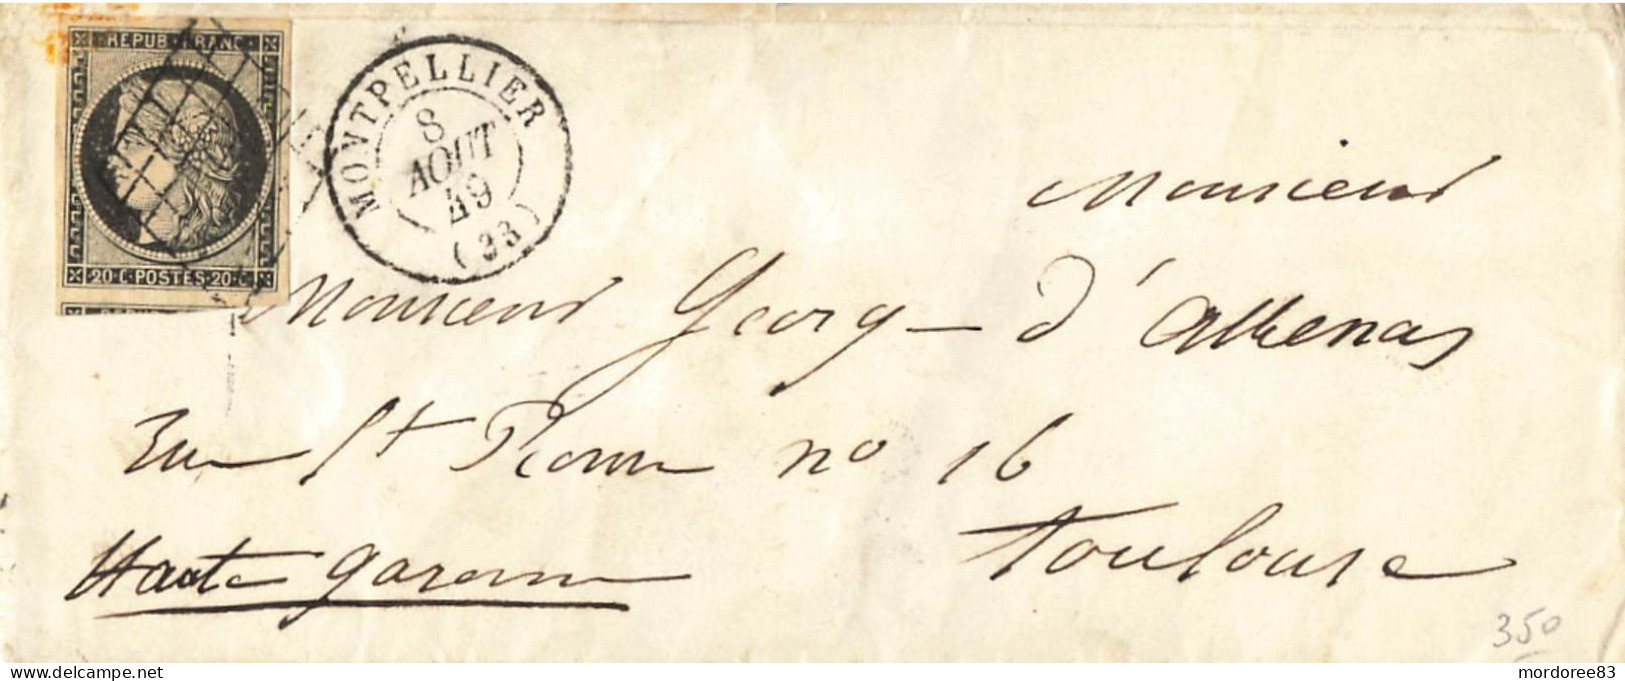 REPUB. FRANC.
20·C·POSTES·20·C
REPUB
MONTPELLIER
8
AOUT
49
(33)
Monsieur
Monsieur Georg d'Athenas
rue St Pierre no 16
Toulouse
Haute garonne
350
mordoree83